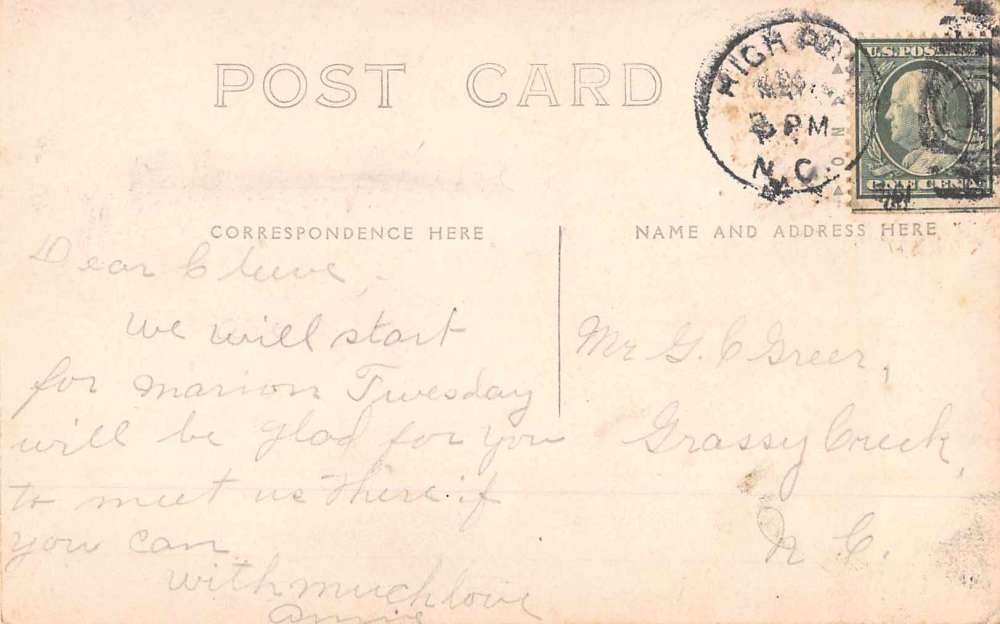 POST CARD
HIGH
2 PM
N.C.
U.S. POSTAGE
ONE CENT
CORRESPONDENCE HERE
NAME AND ADDRESS HERE
Dear
We will start
for Marion Twesday
will be glad for you
to meet us there if
you can
with much love
Annie
Mr G. C Greer,
Grassy Creek,
N C.